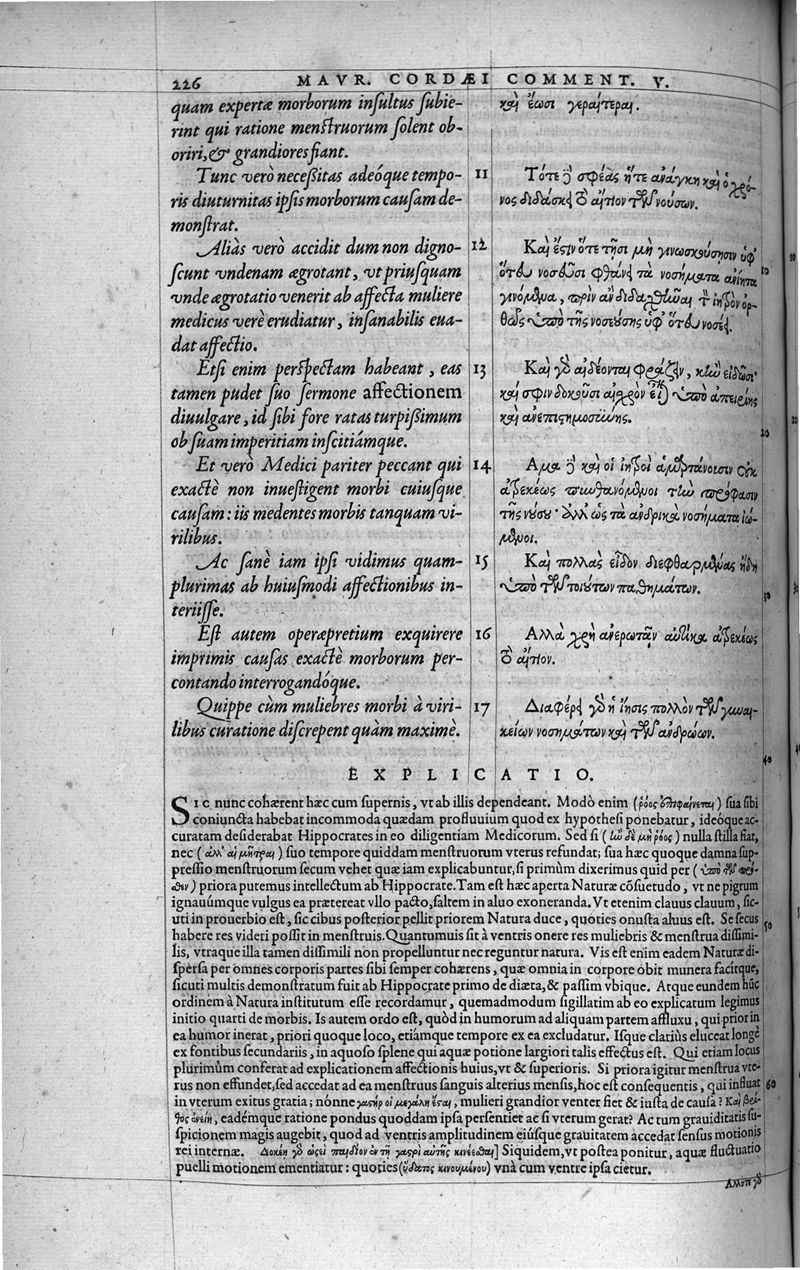 226 MAVR. CORDÆI COMMENT. V.
quam expertæ morborum inſultus ſubie-
rint qui ratione menſtruorum ſolent ob-
oriri, & grandiores fiant.
Tunc verò neceßitas adeóque tempo-
ris diuturnitas ipſis morborum cauſam de-
monſtrat.
Aliàs verò accidit dum non digno-
ſcunt vndenam ægrotant, vt priuſquam
vnde ægrotatio venerit ab affecta muliere
medicus verè erudiatur, inſanabilis eua-
dat affectio.
Etſi enim perſpectam habeant, eas
tamen pudet ſuo ſermone affectionem
diuulgare, id ſibi fore ratas turpißimum
ob ſuam imperitiam inſcitiámque.
Et verò Medici pariter peccant qui
exactè non inueſtigent morbi cuiuſque
cauſam: iis medentes morbis tanquam vi-
rilibus.
Ac ſanè iam ipſi vidimus quam-
plurimas ab huiuſmodi affectionibus in-
teriiſſe.
Eſt autem operæpretium exquirere
imprimis cauſas exactè morborum per-
contando interrogandóque.
Quippe cùm muliebres morbi à viri-
libus curatione diſcrepent quàm maximè.
καὶ ἔωσι γεραίτεραι.
11 Τότε δὲ σφέας ἥτε ἀνάγκη καὶ ὁ χρό-
νος διδάσκει τὸ αἴτιον τῶν νούσων.
12 Καὶ ἔστιν ὅτε τῇσι μὴ γινωσκούσῃσιν ὑφ'
ὅτευ νοσεῦσι φθάνει τὰ νοσήματα ἀνίητα
γινόμενα, πρὶν ἂν διδαχθῆναι τὸν ἰητρὸν ὀρ-
θῶς ὑπὸ τῆς νοσεύσης ὑφ' ὅτευ νοσέει.
13 Καὶ γὰρ αἰδέονται φράζειν, κἢν εἰδῶσι·
καὶ σφιν δοκέουσι αἰσχρὸν εἶναι ὑπὸ ἀπειρίης
καὶ ἀνεπιστημοσύνης.
14 Αμα δὲ καὶ οἱ ἰητροὶ ἁμαρτάνουσιν οὐκ
ἀτρεκέως πυνθανόμενοι τὴν πρόφασιν
τῆς νούσου· ἀλλ' ὡς τὰ ἀνδρικὰ νοσήματα ἰώ-
μενοι.
15 Καὶ πολλὰς εἶδον διεφθαρμένας ἤδη
ὑπὸ τῶν τοιούτων παθημάτων.
16 Αλλὰ χρὴ ἀνερωτᾶν αὐτίκα ἀτρεκέως
τὸ αἴτιον.
17 Διαφέρει γὰρ ἡ ἴησις πολλὸν τῶν γυναι-
κείων νοσημάτων καὶ τῶν ἀνδρώων.
10
20
30
40
EXPLICATIO.
SIC nunc cohærent hæc cum ſupernis, vt ab illis dependeant. Modò enim (ῥόος ἐπιφαίνεται) ſua ſibi
coniuncta habebat incommoda quædam profluuium quod ex hypotheſi ponebatur, ideóque ac-
curatam deſiderabat Hippocrates in eo diligentiam Medicorum. Sed ſi (ἢν δὲ μὴ ῥόος) nulla ſtilla fiat,
nec (ἀλλ' αἱ μῆτραι) ſuo tempore quiddam menſtruorum vterus refundat; ſua hæc quoque damna ſup-
preſſio menſtruorum ſecum vehet quæ iam explicabuntur, ſi primùm dixerimus quid per (ὑπὸ τῶν πρό-
θεν) priora putemus intellectum ab Hippocrate. Tam eſt hæc aperta Naturæ cõſuetudo, vt ne pigrum
ignauúmque vulgus ea prætereat vllo pacto, ſaltem in aluo exoneranda. Vt etenim clauus clauum, ſic-
uti in prouerbio eſt, ſic cibus poſterior pellit priorem Natura duce, quoties onuſta aluus eſt. Se ſecus
habere res videri poſſit in menſtruis. Quantumuis ſit à ventris onere res muliebris & menſtrua diſſimi-
lis, vtraque illa tamen diſſimili non propelluntur nec reguntur natura. Vis eſt enim eadem Naturæ di-
ſperſa per omnes corporis partes ſibi ſemper cohærens, quæ omnia in corpore obit munera facitque,
ſicuti multis demonſtratum fuit ab Hippocrate primo de diæta, & paſſim vbique. Atque eundem hũc
ordinem à Natura inſtitutum eſſe recordamur, quemadmodum ſigillatim ab eo explicatum legimus
initio quarti de morbis. Is autem ordo eſt, quòd in humorum ad aliquam partem affluxu, qui prior in
ea humor inerat, priori quoque loco, etiámque tempore ex ea excludatur. Iſque clariùs eluceat longè
ex fontibus ſecundariis, in aquoſo ſplene qui aquæ potione largiori talis effectus eſt. Qui etiam locus
plurimùm conferat ad explicationem affectionis huius, vt & ſuperioris. Si priora igitur menſtrua vte-
rus non effundet, ſed accedat ad ea menſtruus ſanguis alterius menſis, hoc eſt conſequentis, qui influat
in vterum exitus gratia; nónne γαστήρ οἱ μεγάλη ἔσται, mulieri grandior venter fiet & iuſta de cauſa? Καὶ βρί-
θος ἐνείη, eadémque ratione pondus quoddam ipſa perſentiet ac ſi vterum gerat? Ac tum grauiditatis ſu-
ſpicionem magis augebit, quod ad ventris amplitudinem eiúſque grauitatem accedat ſenſus motionis
rei internæ. Δοκέῃ γὰρ ὡσεὶ παιδίον ἐν τῇ γαστρὶ αὐτῆς κινέεσθαι] Siquidem, vt poſtea ponitur, aquæ fluctuatio
puelli motionem ementiatur: quoties (ὕδατος κινουμένου) vnà cum ventre ipſa cietur.
50
60